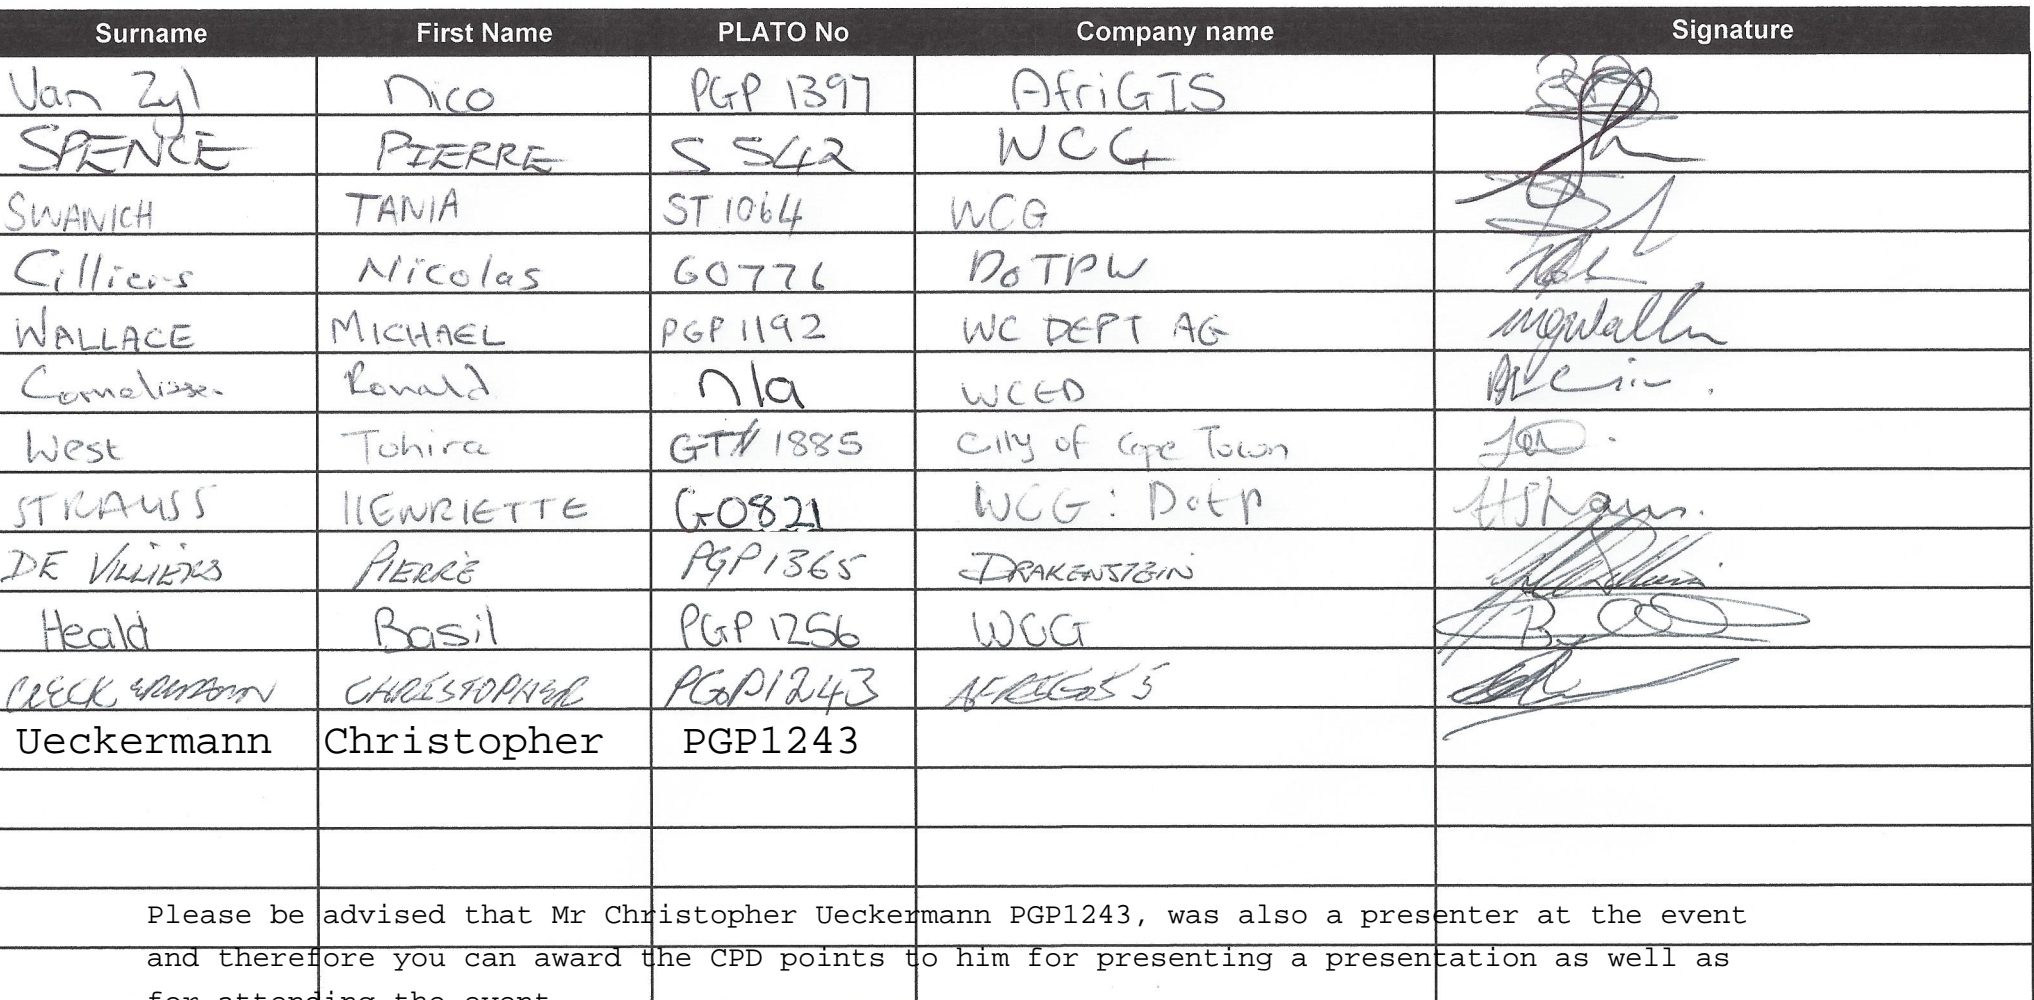 Surname First Name PLATO No Company name Signature
Van Zyl Nico PGP 1397 AfriGIS
SPENCE PIERRE S 542 WCG
SWANICH TANIA ST 1064 WCG
Cilliers Nicolas G0776 DoTPW
WALLACE MICHAEL PGP 1192 WC DEPT AG
Ronald n/a WCED
West Tohira 1885 City of Cape Town
STRAUSS HENRIETTE G0821 WCG: DotP
DE VILLIERS PIERRE PGP1365 DRAKENSTEIN
Heald Basil PGP 1256 WCG
CHRISTOPHER PGP1243
Ueckermann Christopher PGP1243
Please be advised that Mr Christopher Ueckermann PGP1243, was also a presenter at the event
and therefore you can award the CPD points to him for presenting a presentation as well as
for attending the event